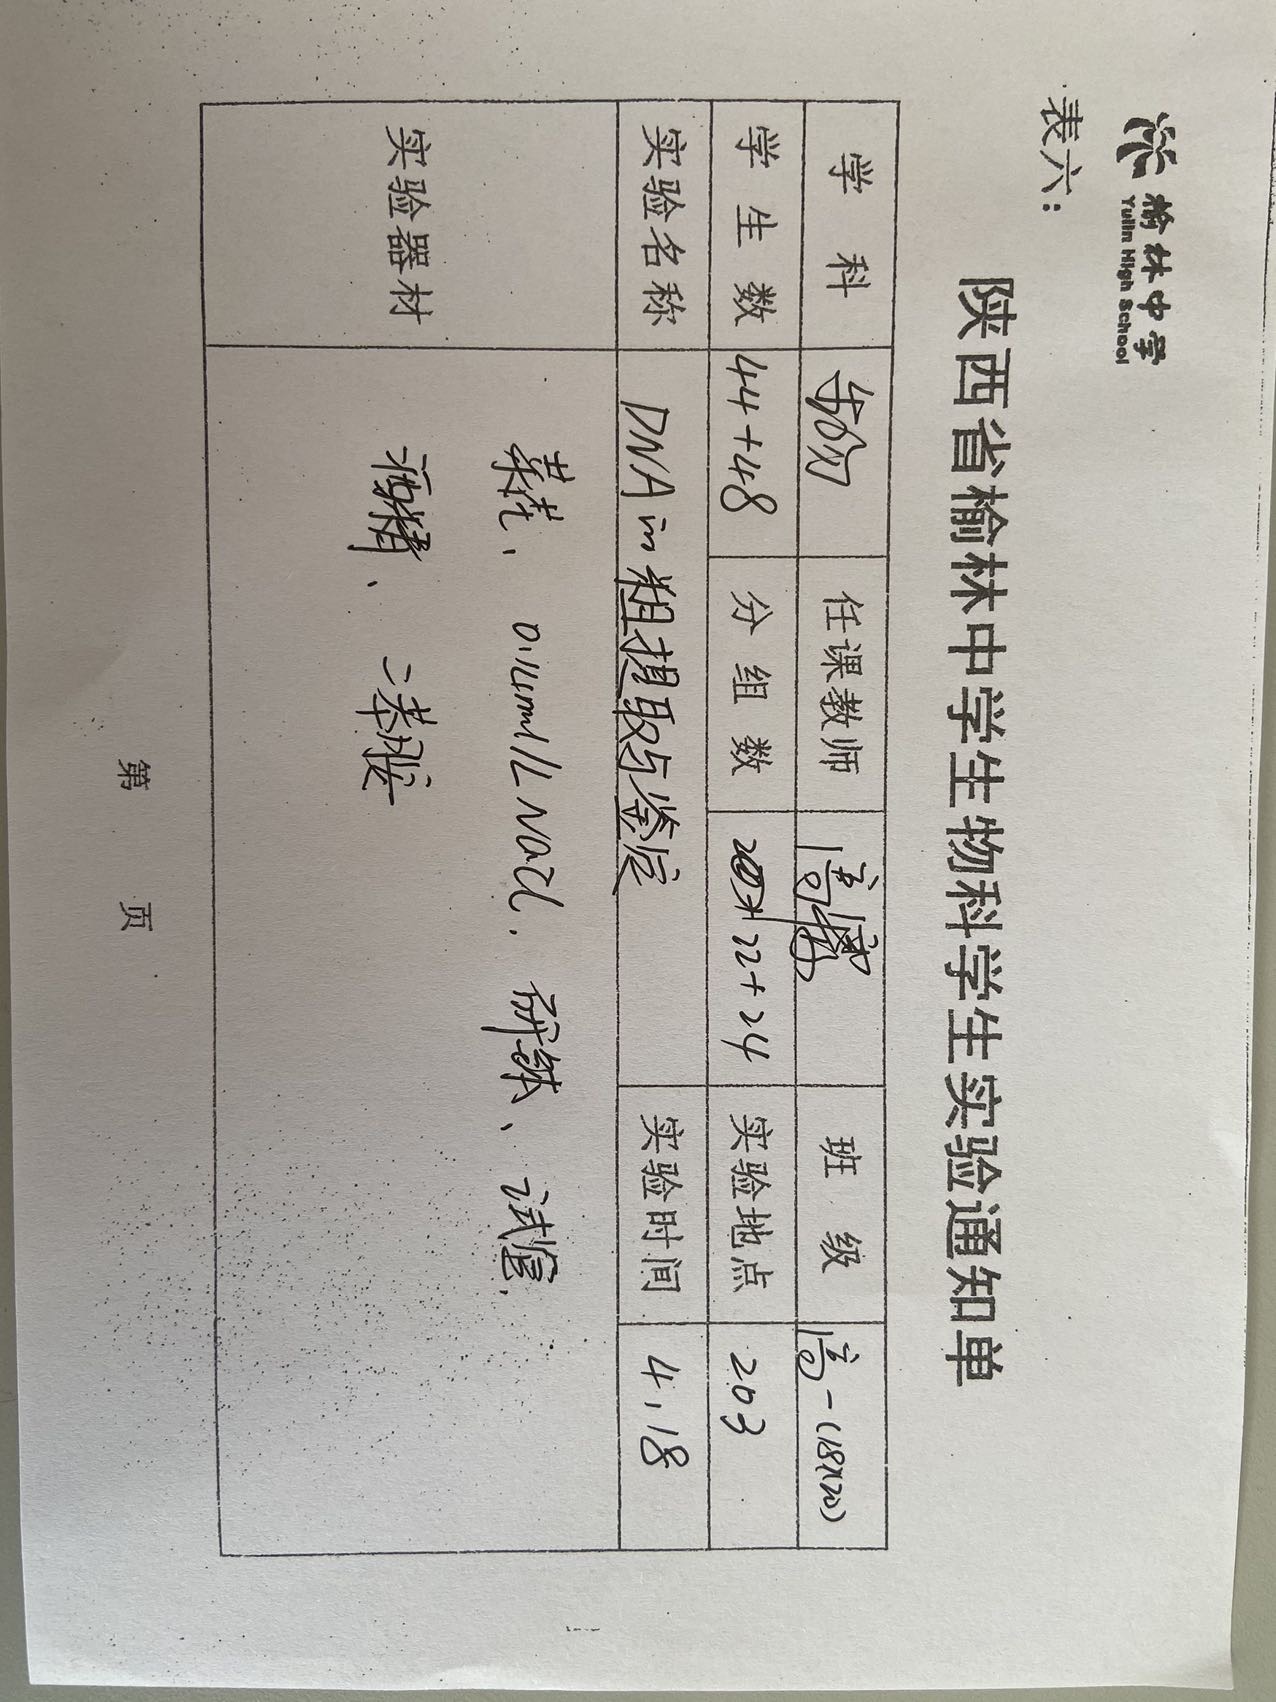 榆林中学
Yulin High School
表六：
陕西省榆林中学生物科学生实验通知单
学科 生物 任课教师 高 班级 高一(18)(20)
学生数 44+48 分组数 22+24 实验地点 203
实验名称 DNA in 粗提取与鉴定 实验时间 4.18
实验器材
菜花、0.14mol/L NaCl、研钵、试管、
酒精、二苯胺
第 页